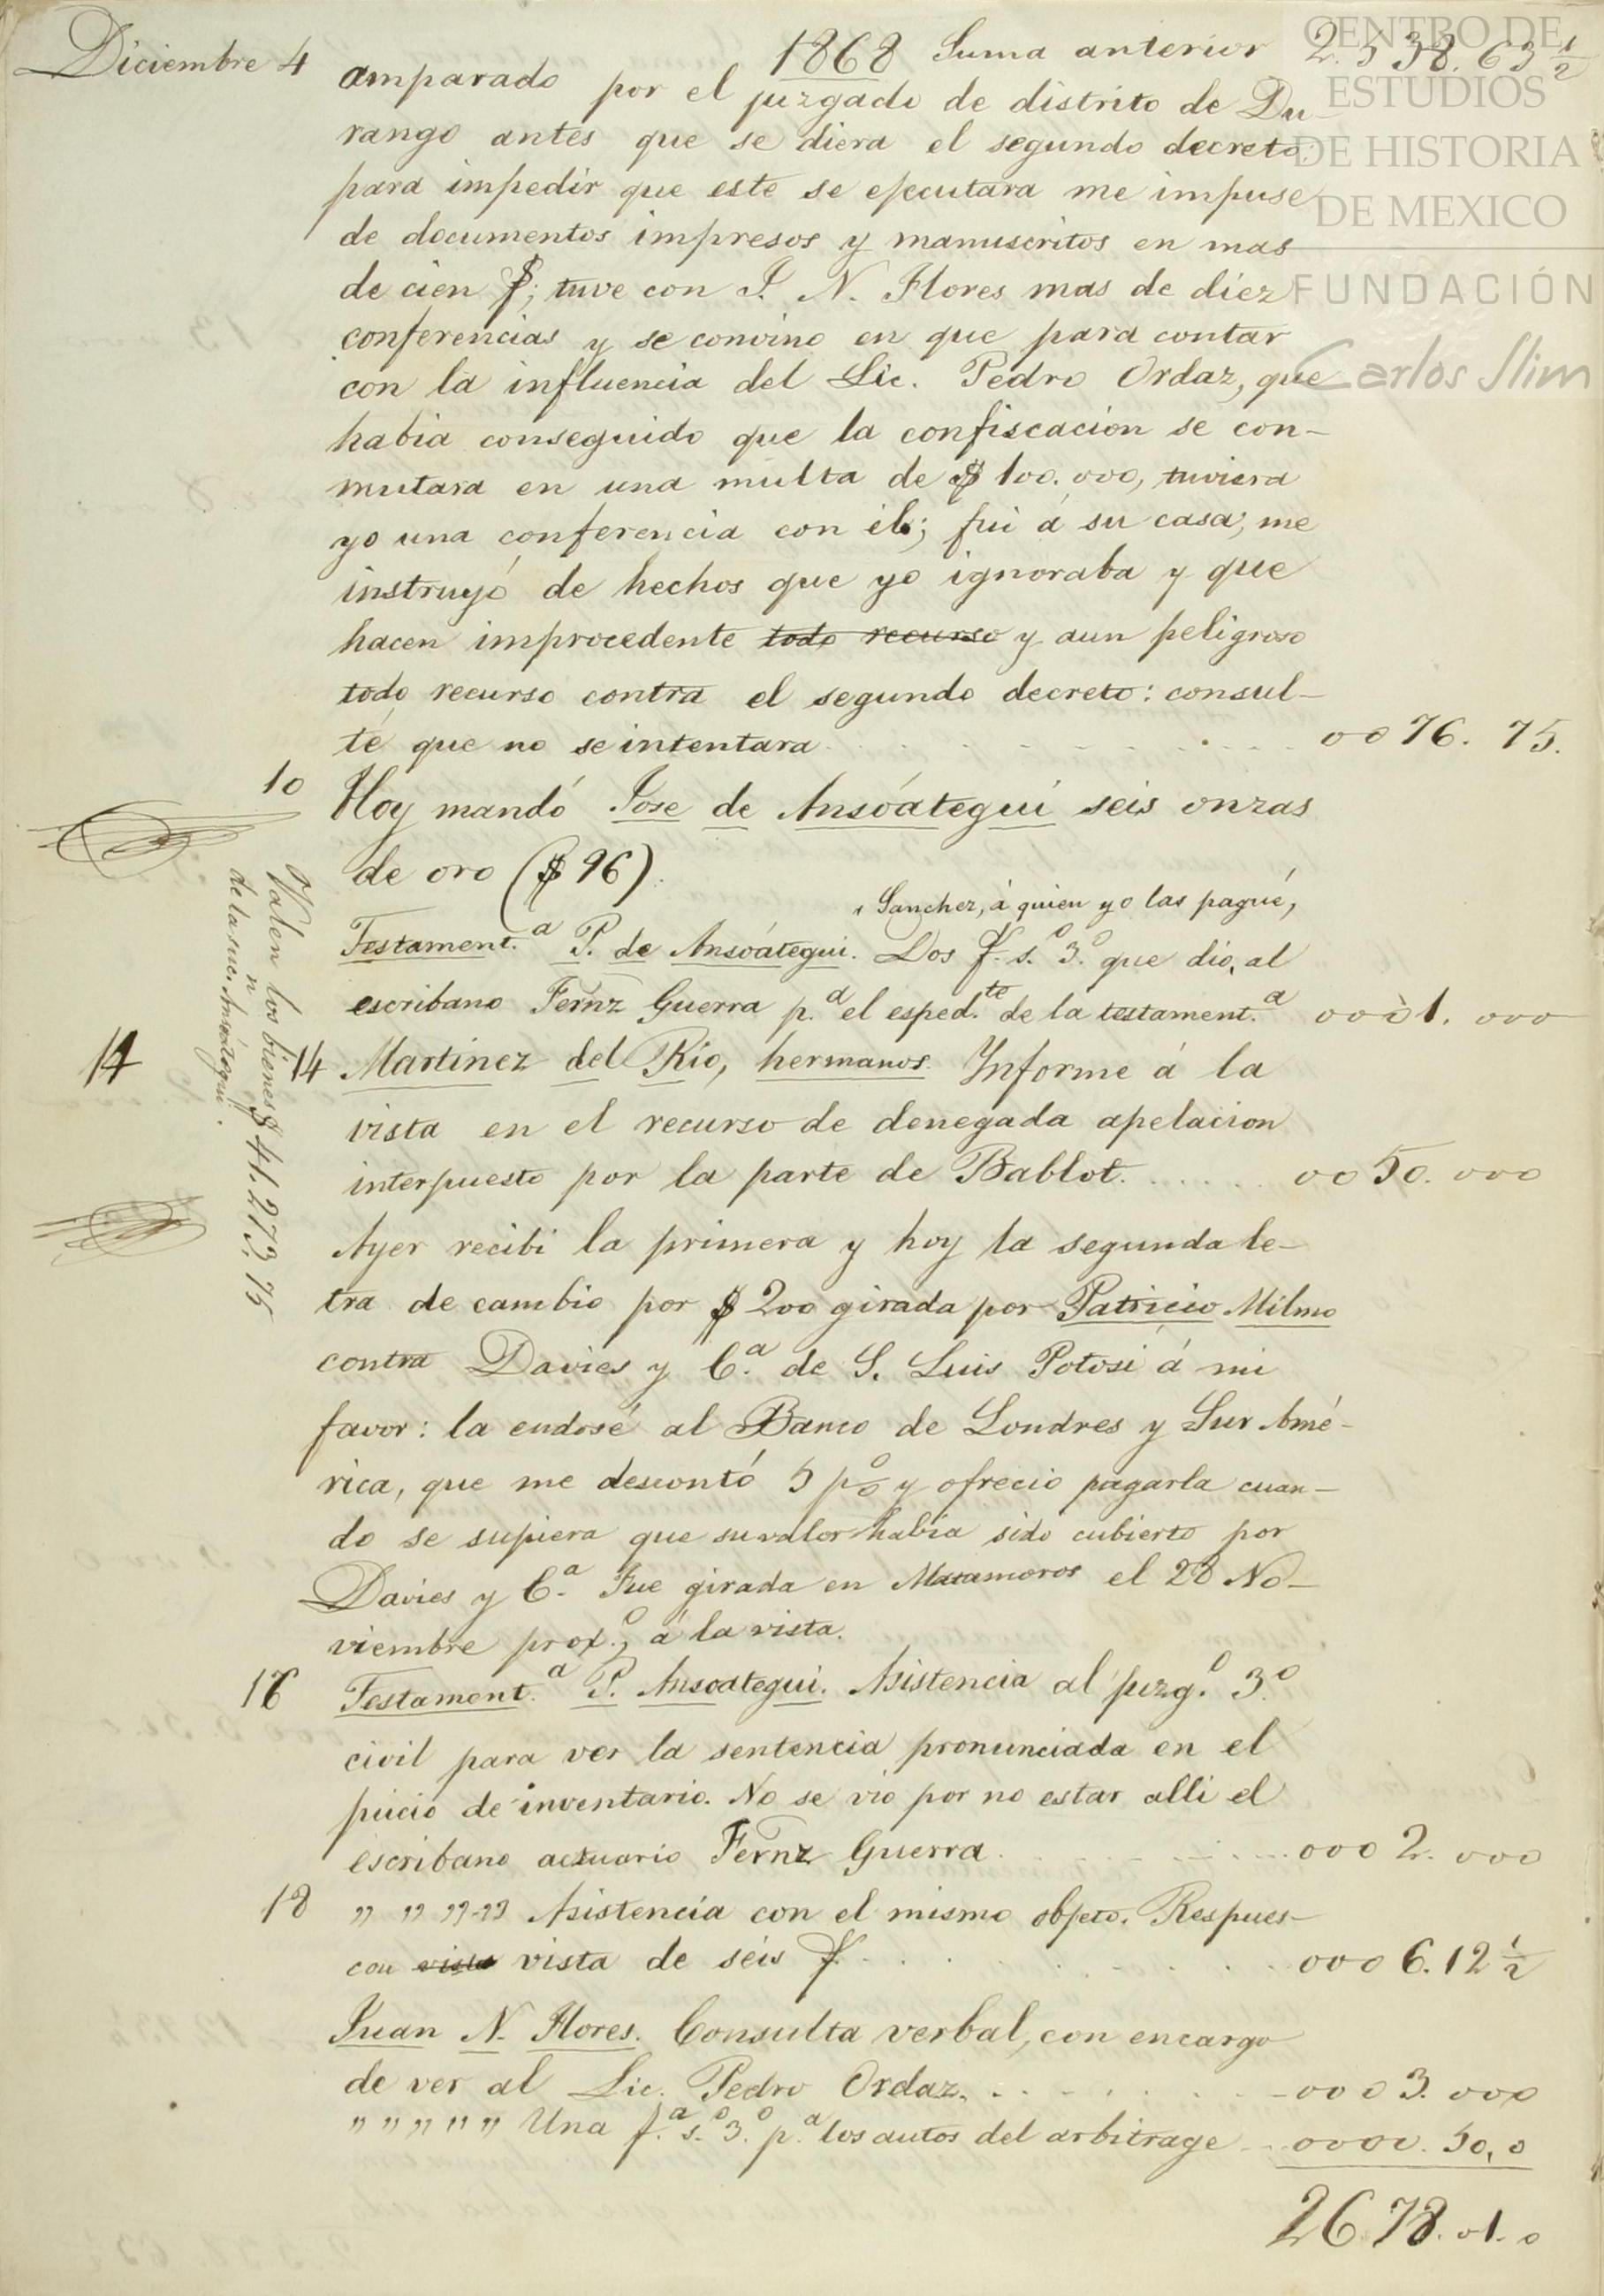 CENTRO DE
ESTUDIOS
DE HISTORIA
DE MEXICO
FUNDACIÓN
Carlos Slim
1868 Suma anterior 2.538.63 1/2
Diciembre 4 amparado por el juzgado de distrito de Du-
rango antes que se diera el segundo decreto:
para impedir que este se ejecutara me impuse
de documentos impresos y manuscritos en mas
de cien f; tuve con J. N. Flores mas de diez
conferencias y se convino en que para contar
con la influencia del Lic. Pedro Ordaz, que
habia conseguido que la confiscacion se con-
mutara en una multa de $ 100.000, tuviera
yo una conferencia con él; fui á su casa, me
instruyó de hechos que yo ignoraba y que
hacen improcedente todo recurso y aun peligroso
todo recurso contra el segundo decreto: consul-
té que no se intentara. 0076. 75.
10 Hoy mandó Jose de Ansóategui seis onzas
de oro ($ 96).
Sanchez, á quien yo las pagué,
Testament.a P. de Ansóategui. Dos f. s.o 3.o que dió, al
escribano Fernz Guerra p.a el esped.te de la testament.a 0001. 000
14 14 Martinez del Rio, hermanos. Informe á la
vista en el recurso de denegada apelacion
interpuesto por la parte de Bablot. 0050. 000
Valen los bienes $ 41.273.75
de la suc.n Ansóategui.
Ayer recibi la primera y hoy la segunda le-
tra de cambio por $ 200 girada por Patricio Milmo
contra Davies y C.a de S. Luis Potosi á mi
favor: la endosé al Banco de Londres y Sur Amé-
rica, que me descontó 5 p% y ofreció pagarla cuan-
do se supiera que su valor habia sido cubierto por
Davies y C.a Fue girada en Matamoros el 28 No-
viembre prox.o, á la vista.
16 Testament.a P. Ansoategui. Asistencia al juzg.o 3.o
civil para ver la sentencia pronunciada en el
juicio de inventario. No se vió por no estar alli el
escribano actuario Fernz Guerra. 0002. 000
18 " " "-" Asistencia con el mismo objeto. Respues-
con vista vista de séis f. 0006.12 1/2
Juan N. Flores. Consulta verbal, con encargo
de ver al Lic. Pedro Ordaz. 0003. 000
" " " " " Una f.a s.o 3.o p.a los autos del arbitrage 0000. 50,0
2678.01.0